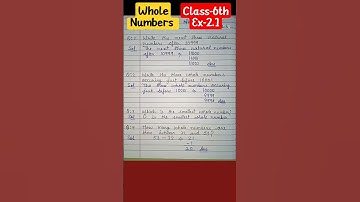 Whole
Numbers
Class-6th
Ex-2.1
Q.1 Write the next three natural
numbers after 10999.
Sol The next three natural numbers
after 10999 →
Q.2 Write the three whole numbers
occuring just before 10001
Sol The three whole numbers occuring
just before 10001 → 10000
9999
9998 Ans
Q.3 Which is the smallest whole number
Sol 0 is the smallest whole number
Q.4 How many whole numbers are
there between 32 and 53?
Sol 53 - 32 = 21
-1
20 Ans